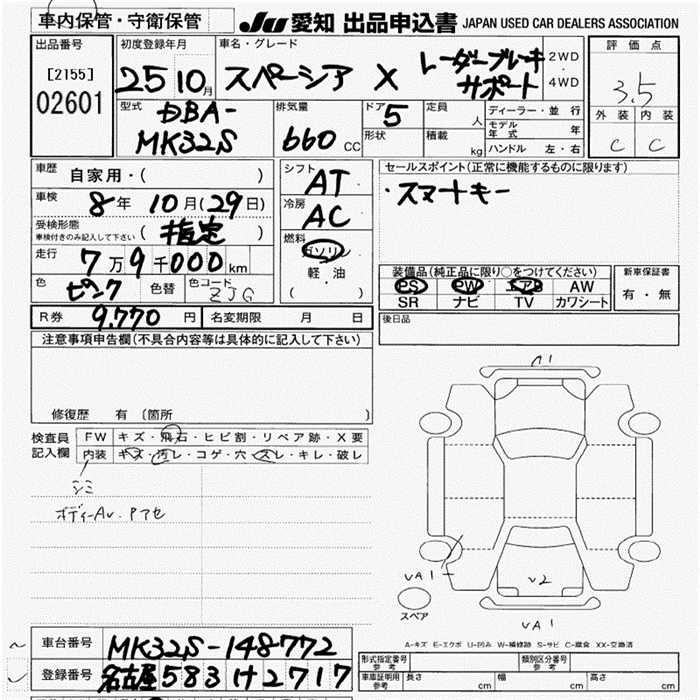 車内保管・守衛保管
JU 愛知 出品申込書 JAPAN USED CAR DEALERS ASSOCIATION
出品番号
[2155]
02601
初度登録年月
25 10月
車名・グレード
スペーシア X レーダーブレーキサポート
2WD
4WD
評価点
3.5
外装 内装
C C
型式
DBA-
MK32S
排気量
660 CC
ドア
5
形状
定員
人
積載
kg
ディーラー・並行
モデル年式 年
ハンドル 左・右
車歴
自家用・( )
車検
8年 10月(29日)
受検形態
車検付きのみ記入して下さい
(指定)
走行
7万9千000km
色
ピンク
色替
色コード
ZJG
シフト
AT
冷房
AC
燃料
ガソリン
軽・油
( )
セールスポイント(正常に機能するものに限ります)
・スマートキー
装備品(純正品に限り○をつけてください)
PS PW エアB AW
SR ナビ TV カワシート
新車保証書
有・無
R券 9,770円
名変期限 月 日
後日品
注意事項申告欄(不具合内容等は具体的に記入して下さい)
修復歴 有 〔箇所 〕
検査員
記入欄
FW キズ・飛石・ヒビ割・リペア跡・X要
内装 キズ・汚レ・コゲ・穴・スレ・キレ・破レ
シミ
ボディーAu.Pアセ
A1
UA1
U2
UA1
スペア
A-キズ E-エクボ U-凹み W-補修跡 S-サビ C-腐食 XX-交換済
車台番号 MK32S-148772
登録番号 名古屋 583 け 2717
形式指定番号
参考
類別区分番号
参考
車庫証明用
参考
長さ cm
幅 cm
高さ cm